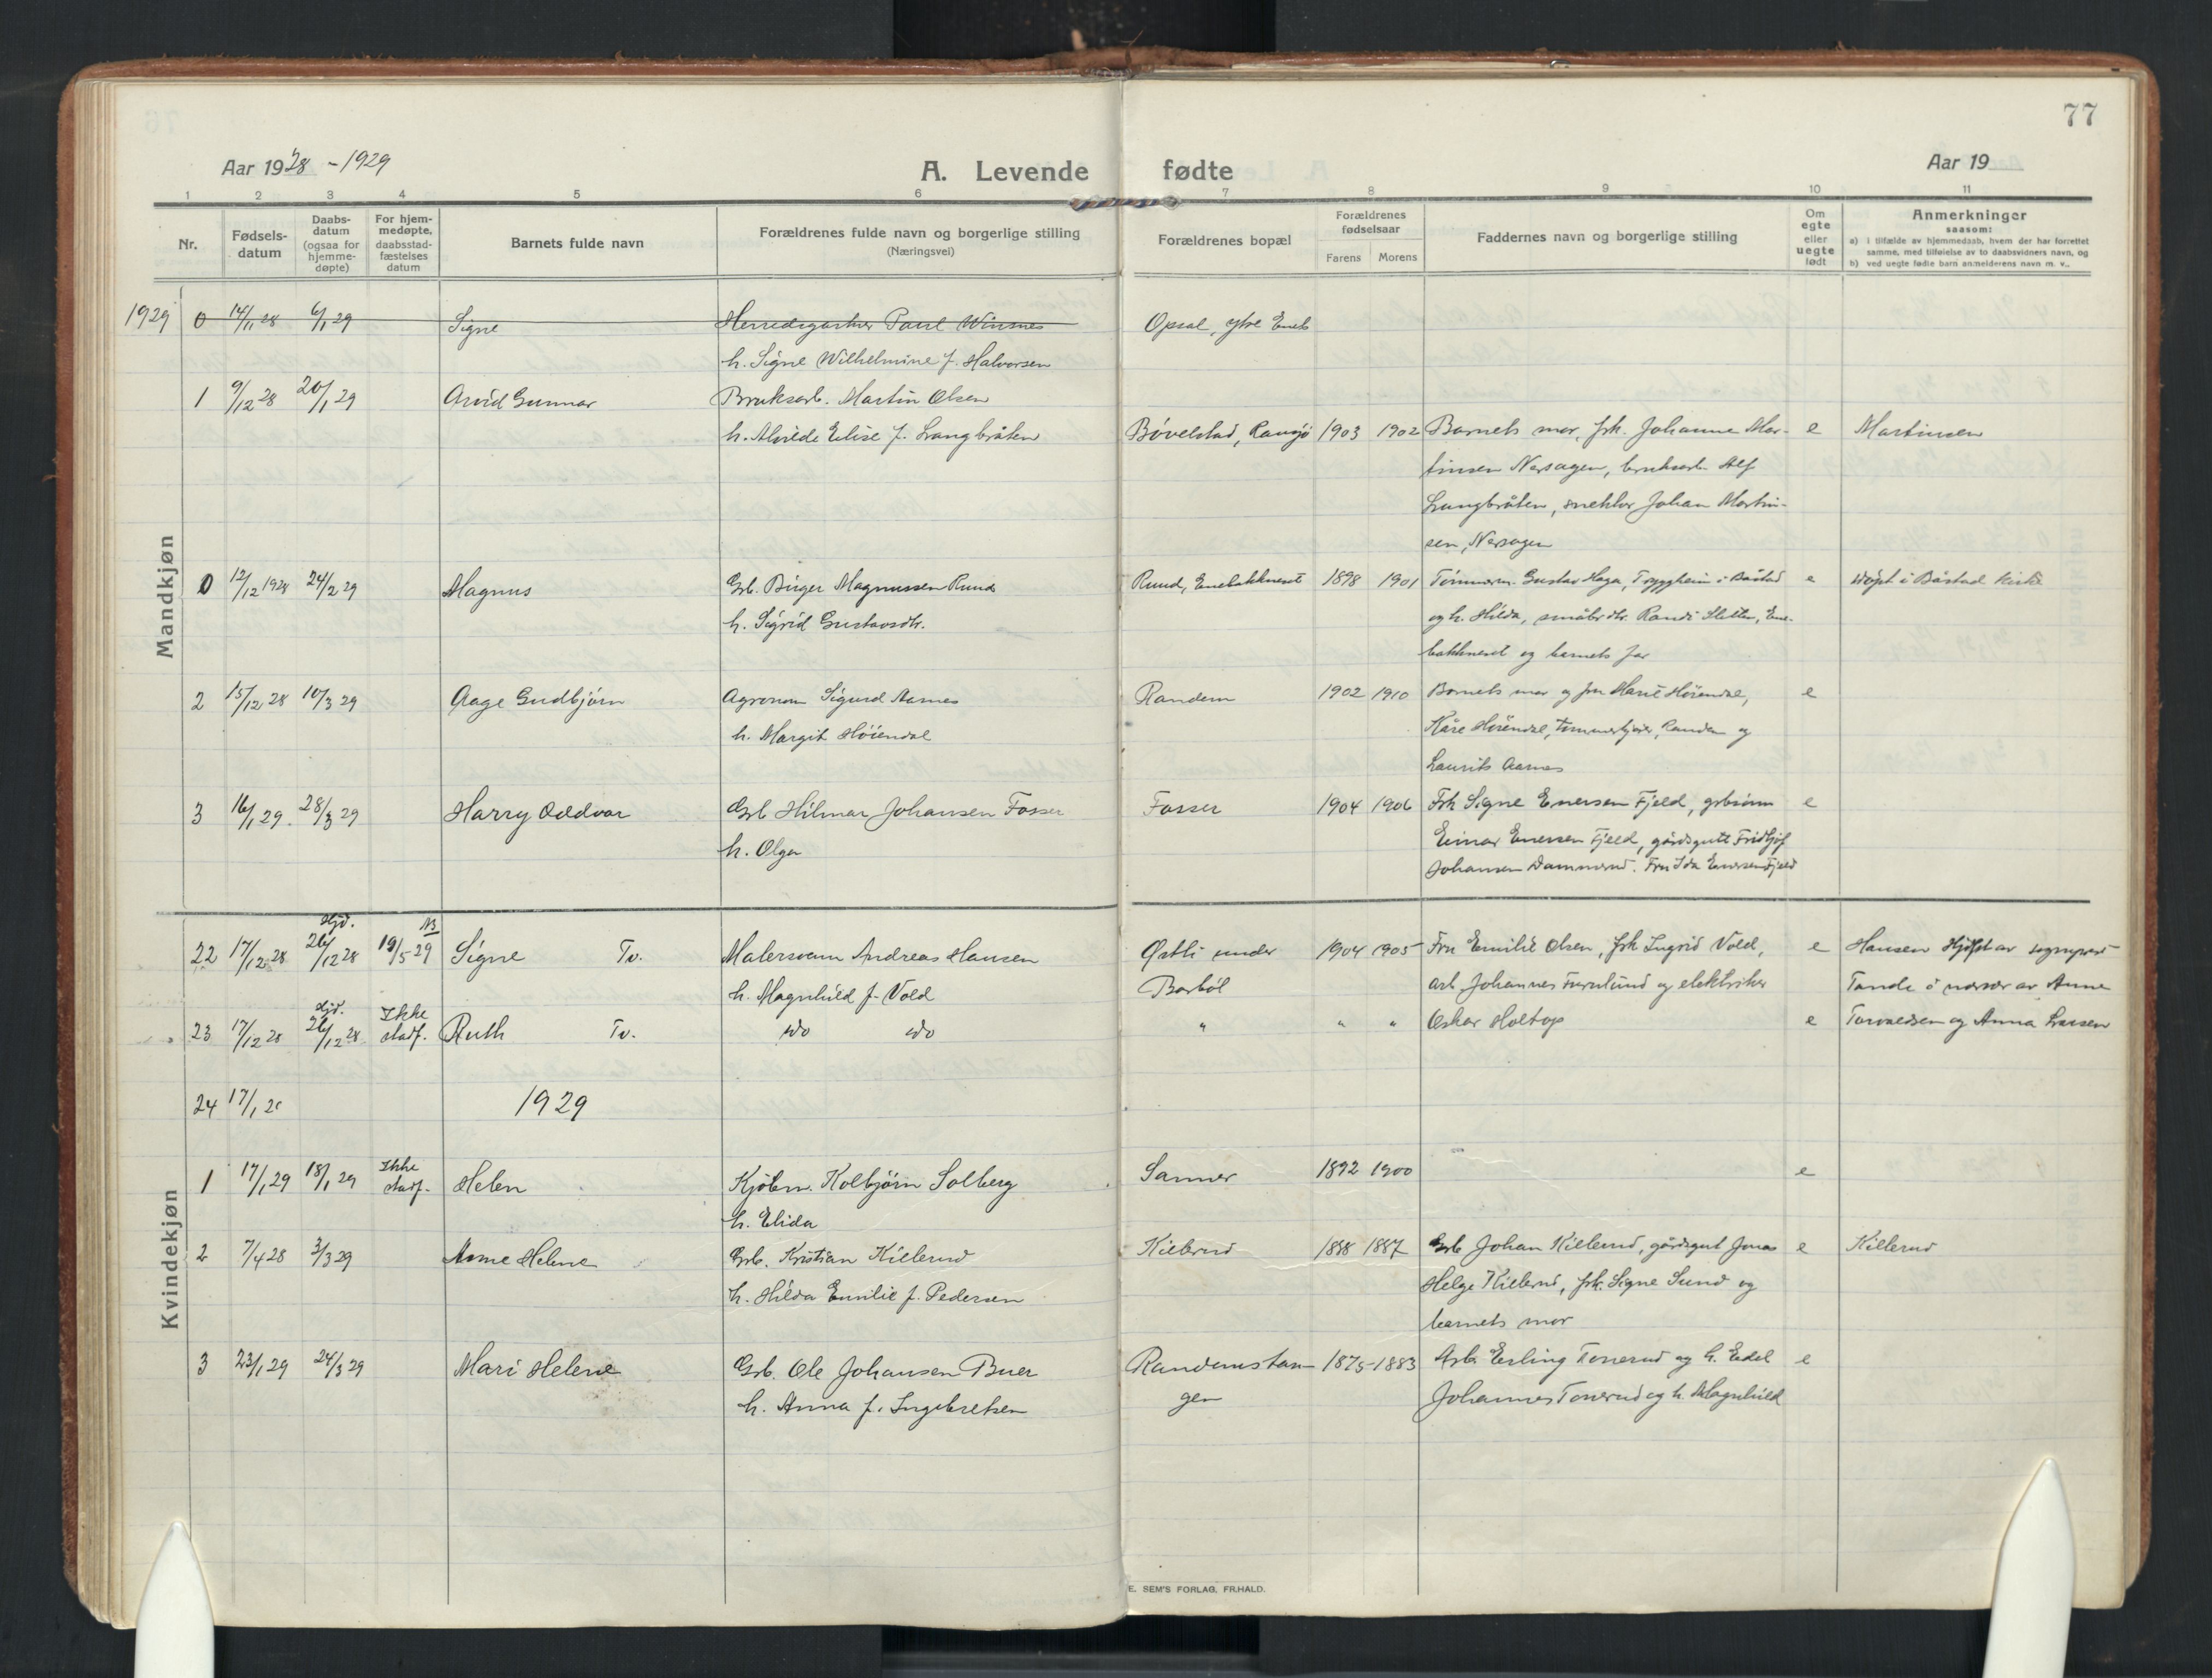 77
Aar 1928 - 1929
A. Levende fødte
Aar 19
1 2 3 4 5 6 7 8 9 10 11
Nr.
Fødsels-
datum
Daabs-
datum
(ogsaa for
hjemme-
døpte)
For hjem-
medøpte,
daabsstad-
fæstelses
datum
Barnets fulde navn
Forældrenes fulde navn og borgerlige stilling
(Næringsvei)
Forældrenes bopæl
Forældrenes
fødselsaar
Farens Morens
Faddernes navn og borgerlige stilling
Om
egte
eller
uegte
født
Anmerkninger
saasom:
a) i tilfælde av hjemmedaab, hvem der har forrettet
samme, med tilføielse av to daabsvidners navn, og
b) ved uegte fødte barn anmelderens navn m. v..
Mandkjøn
1929 0 14/11 28 6/1 29 Signe Herredsgartner Paul Winsnes Opsal, ytre Eneb
h. Signe Wilhelmine f. Halvorsen
1 9/12 28 20/1 29 Arvid Gunnar Bruksarb. Martin Olsen
h. Alvilde Elise f. Langbråten Bøvelstad, Ransjö 1903 1902 Barnets mor, frk. Johanne Mar- e Martinsen
tinsen Nersagen, bruksarb. Alf
Langbråten, snekker Johan Martin-
sen, Nersagen
0 12/12 1928 24/2 29 Magnus Grb. Birger Magnussen Ruud Ruud, Enebakkneset 1898 1901 Tömmerm. Gustav Haga, Tryggheim i Båstad e Døpt i Båstad kirke
h. Sigrid Gustavsdtr. og h. Hilda, småbr.dtr. Randi Sletten, Ene-
bakkneset og barnets far
2 15/12 28 10/3 29 Aage Gudbjörn Agronom Sigurd Aarnes Randem 1902 1910 Barnets mor og fru Marit Høiendal, e
h. Margit Höiendal Kåre Høiendal, tømmerkjører, Randem og
Laurits Aarnes
3 16/1 29 28/3 29 Harry Oddvar Grb. Hilmar Johansen Fosser Fosser 1904 1906 Frk Signe Enersen Fjeld, grbsønn e
h. Olga Einar Enersen Fjeld, gårdsgutt Fridtjof
Johansen Dammerud. Fru Ida Enersen Fjeld
Kvindekjøn
22 17/12 28 Hjd. 26/12 28 NB 19/5 29 Signe Tv. Malersvenn Andreas Hansen Østli under 1904 1905 Fru Emilie Olsen, frk Ingrid Vold, e Hansen Hjdpt av sogneprest
h. Magnhild f. Vold Barböl arb. Johannes Furulund og elektriker Tande i nærvær av Anne
23 17/12 28 Hjd. 26/12 28 Ikke stadf. Ruth Tv. do do " " " Oskar Holtop e Torvaldsen og Anna Larsen
24 17/1 2 1929
1 17/1 29 18/1 29 Ikke stadf. Helen Kjöbm. Kolbjörn Solberg Sanner 1892 1900 e
h. Elida
2 7/4 28 3/3 29 Anne Helene Grb. Kristian Killerud Killerud 1888 1887 Grb Johan Killerud, gårdsgut Jonas e Killerud
h. Hilda Emilie f. Pedersen Helge Killerud, frk. Signe Sund og
barnets mor
3 23/1 29 24/3 29 Mari Helene Grb. Ole Johansen Buer Randemstan- 1875 - 1883 Arb. Erling Tonerud og h. Edel e
h. Anna f. Ingebretsen gen Johannes Tonerud og h. Magnhild
E. SEM'S FORLAG, FR.HALD.